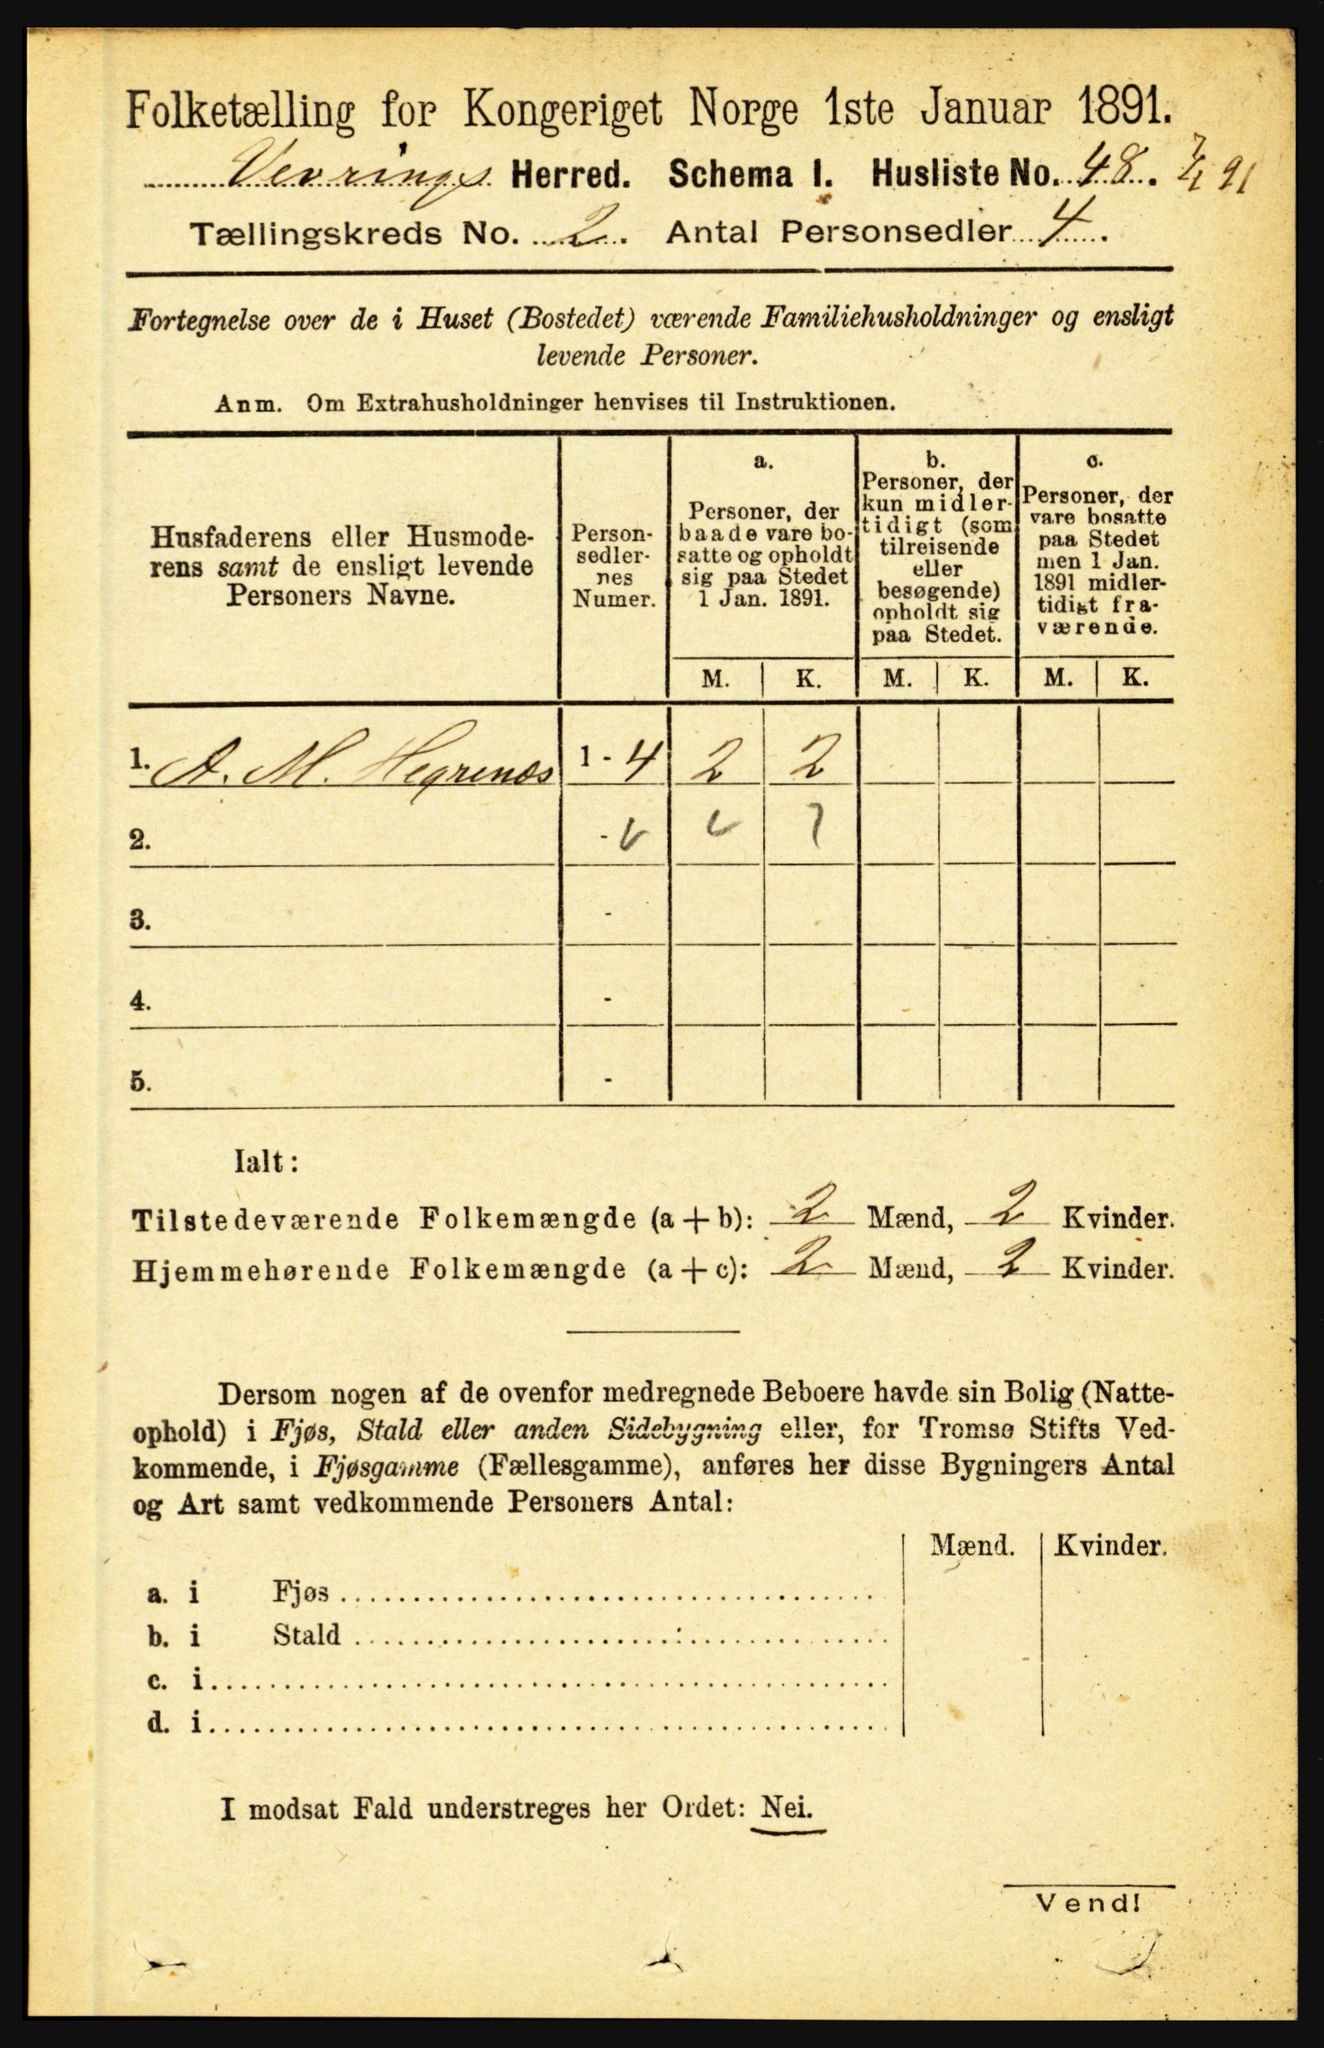 Folketælling for Kongeriget Norge 1ste Januar 1891.
Vevrings Herred. Schema I. Husliste No. 48. 7/1 91
Tællingskreds No. 2. Antal Personsedler 4.
Fortegnelse over de i Huset (Bostedet) værende Familiehusholdninger og ensligt
levende Personer.
Anm. Om Extrahusholdninger henvises til Instruktionen.
Husfaderens eller Husmode-
rens samt de ensligt levende
Personers Navne.
Person-
sedler-
nes
Numer.
a.
Personer, der
baade vare bo-
satte og opholdt
sig paa Stedet
1 Jan. 1891.
b.
Personer, der
kun midler-
tidigt (som
tilreisende
eller
besøgende)
opholdt sig
paa Stedet.
c.
Personer, der
vare bosatte
paa Stedet
men 1 Jan.
1891 midler-
tidigt fra-
værende.
M. K. M. K. M. K.
1. A. M. Hegrenæs 1 - 4 2 2
2. -
3. -
4. -
5. -
Ialt:
Tilstedeværende Folkemængde (a + b): 2 Mænd, 2 Kvinder.
Hjemmehørende Folkemængde (a + c): 2 Mænd, 2 Kvinder.
Dersom nogen af de ovenfor medregnede Beboere havde sin Bolig (Natte-
ophold) i Fjøs, Stald eller anden Sidebygning eller, for Tromsø Stifts Ved-
kommende, i Fjøsgamme (Fællesgamme), anføres her disse Bygningers Antal
og Art samt vedkommende Personers Antal:
Mænd. Kvinder.
a. i Fjøs
b. i Stald
c. i
d. i
I modsat Fald understreges her Ordet: Nei.
Vend!